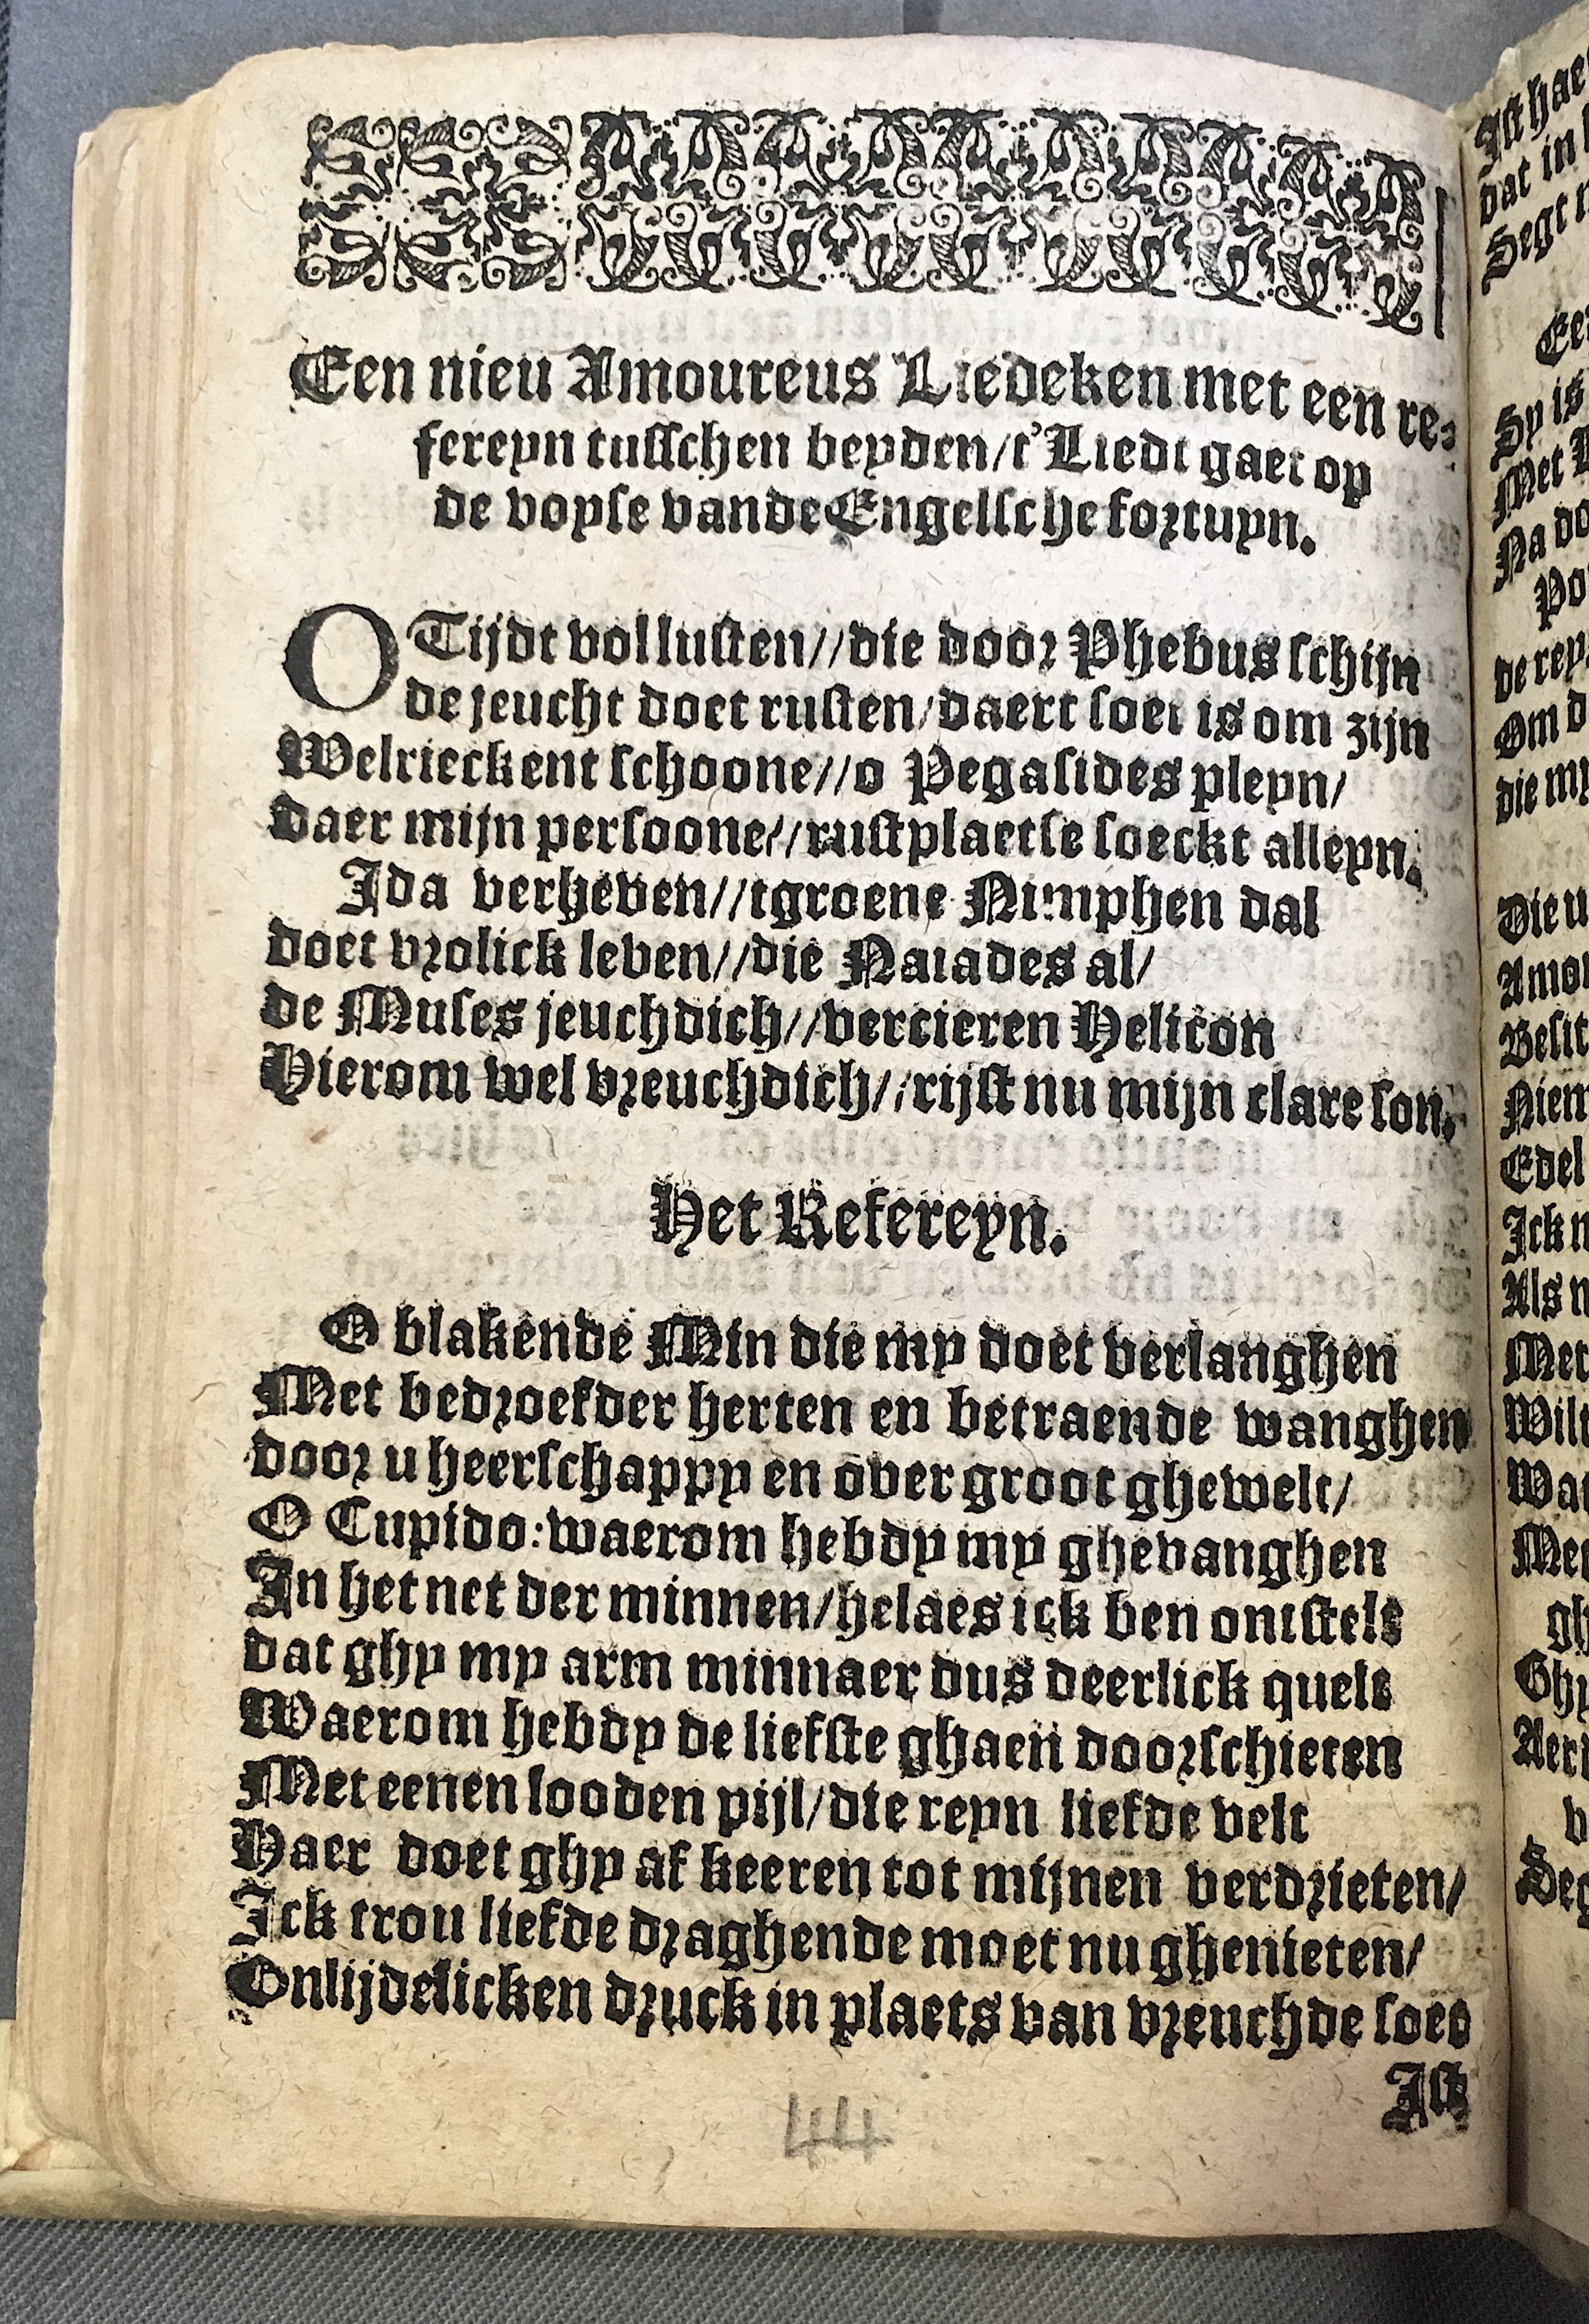 Een nieu Amoureus Liedeken met een re-
fereyn tusschen beyden/t'Liedt gaet op
de voyse vande Engelsche fortuyn.
O Tijdt vol lusten//die door Phebus schijn
de jeucht doet rusten/daert soet is om zijn
Welrieckent schoone//o Pegasides pleyn/
daer mijn persoone//rustplaetse soeckt alleyn.
Ida verheven//tgroene Nimphen dal
doet vrolick leven//die Naiades al/
de Muses jeuchdich//vercieren Helicon
Hierom wel vreuchdich//rijst nu mijn clare son.
Het Refereyn.
O blakende Min die my doet verlanghen
Met bedroefder herten en betraende wanghen
door u heerschappy en over groot ghewelt/
O Cupido:waerom hebdy my ghevanghen
In het net der minnen/helaes ick ben ontstelt
dat ghy my arm minnaer dus deerlick quelt
Waerom hebdy de liefste ghaen doorschieten
Met eenen looden pijl/die reyn liefde velt
Haer doet ghy af keeren tot mijnen verdrieten/
Ick trou liefde draghende moet nu ghenieten/
Onlijdelicken druck in plaets van vreuchde soet
Ick
44
Ick
dat in
Segt
Sy is
Met
Na
de
Om
die
Die
Niem
Edel
Ick
Als
Met
Wilt
Ghy